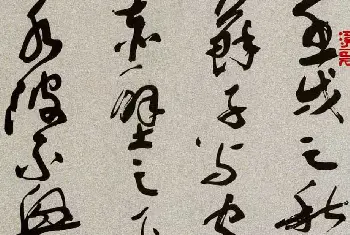 壬戌之秋
蘇子与客
赤壁之下
水波不興